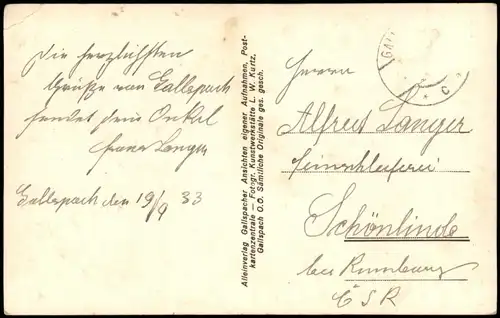 Die herzlichsten
Grüße von Gallspach
sendet dein Onkel
Franz Langer
Gallspach den 19/9 33
Alleinverlag Gallspacher Ansichten eigener Aufnahmen, Post-
kartenzentrale — Fotogr. Kunstwerkstätte L. W. Kurtz,
Gallspach O.Ö. Sämtliche Originale ges. gesch.
GAL
Herrn
Alfred Langer
Feinschleiferei
Schönlinde
bei Rumburg
ČSR